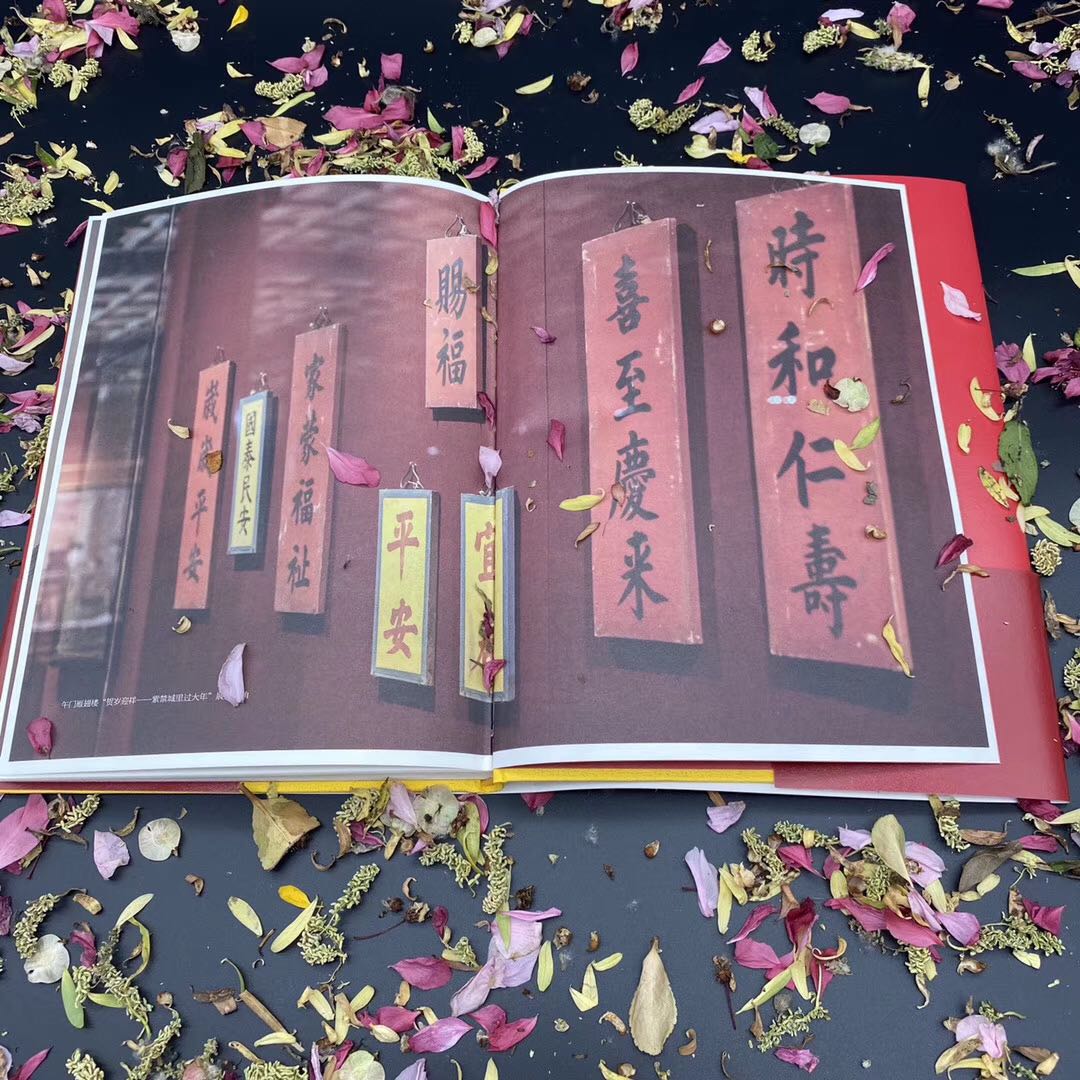 歲歲平安
國泰民安
家蒙福祉
賜福
平安
宜
喜至慶来
時和仁壽
午门雁翅楼“贺岁迎祥——紫禁城里过大年”展